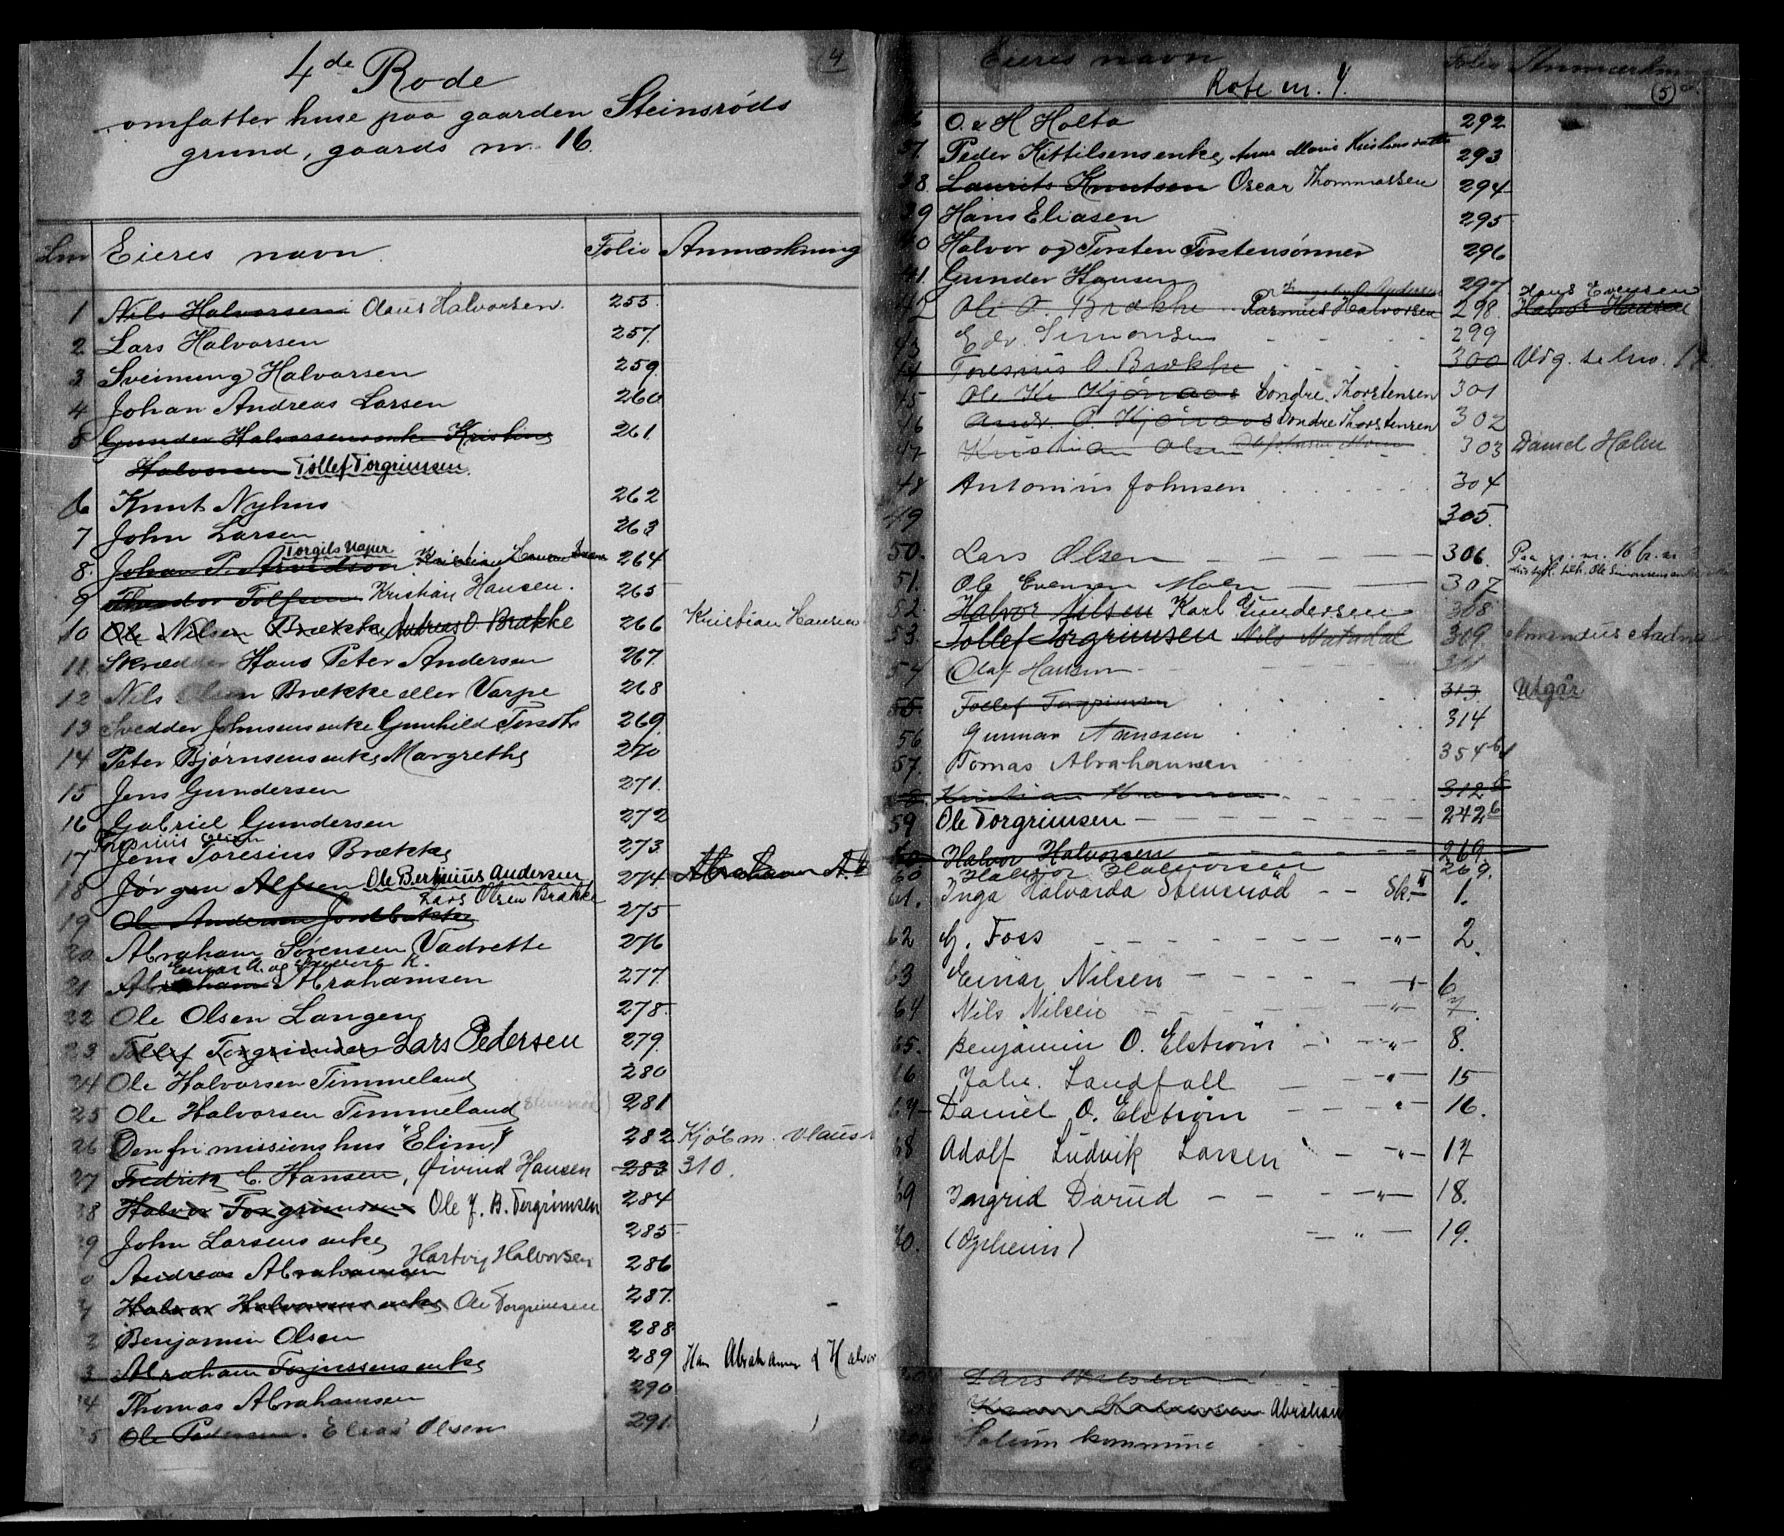 4
4de Rode
omfatter huse paa gaarden Steinsrøds
grund, gaards nr. 16.
Lnr Eieres navn. Folio Anmærkning
1 Nils Halvorsen Olaus Halvorsen. 255.
2 Lars Halvorsen 257.
3 Sveinung Halvorsen 259.
4 Johan Andreas Larsen 260
5 Gunder Halvorsens enke Kristine 261.
Halvorsen Tollef Torgrimsen.
6 Knut Nyhus 262
7 John Larsen 263
Torgils Uajur
8. Johan P. Arvidson Kristian Hansen 264
9 Theodor Tolfsen Kristian Hansen. 265
10 Ole Nilsen Brække Andreas O. Brække 266 Kristian Hansen
11. Skrædder Hans Peter Andersen 267.
12 Nils Olsen Brække eller Varpe 268
13 Svedder Johnsens enke Gunhild Torsdtr 269.
14 Peter Bjørnsens enke Margrethe 270
15 Jens Gundersen 271.
16 Gabriel Gundersen 272
Toresius Olsen
17 Jens Toresius Brække 273
18 Jørgen Alfsen Ole Bernius Andersen 274 Abraham A.
Lars Olsen Brække
19 Ole Andersen Jordbakke 275
20 Abraham Sørensen Vadrette 276
Einar A. og Ingeborg K.
21 Abraham Abrahamsen 277.
22 Ole Olsen Langen 278.
23 Tollef Torgrimsen Lars Pedersen 279.
24 Ole Halvorsen Timmeland 280
25 Ole Halvorsen Timmeland (Stensrød) 281
26 Den fri missions hus "Elim" 282 Kjøbm. Olaus
27 Fredrik C. Hansen, Øivind Hansen 283 310.
28 Halvor Torgrimsen Ole J. B. Torgrimsen 284
29 John Larsens enke 285
Hartvig Halvorsen
0 Andreas Abrahamsen 286
Halvor Halvorsens enke Ole Torgrimsen 287.
2 Benjamin Olsen 288
3 Abraham Torjussens enke 289 Han Abrahamsen & Halvor
34 Thomas Abrahamsen 290
35 Ole Pedersen. Elias Olsen 291.
Eieres navn Folio Anmærkning
Rote nr. 4. 5
36 O. & H Holta 292
37. Peder Kittilsens enke, Anne Marie Kristensdatter 293
38. Laurits Knutsen Oscar Thommassen 294
39 Hans Eliasen 295
40 Halvor og Torsten Torstensønner 296
41. Gunder Hansen 297 Hans Evensen
42 Ole O. Brække Rasmus Halvorsen 298. Halvor Hansen
43 Edv. Simonsen 299
44 Toresius O. Brække 300 Udg. se lnr. 17
45 Ole Kr Kjønaas Sondre Thorstensen 301
46 Andr. P. Kjønaas Sondre Thorstensen 302
47 Kristian Olsen 303 Daniel Holen
48 Antonius Johnsen 304
49 305.
50. Lars Olsen 306. Paa gr. nr. 16 br. nr.
51. Ole Evensen Moen 307
52. Halvor Nilsen Karl Gundersen 308
53. Tollef Torgrimsen 309 Amandus Aadne
54 Olaf Hansen 311
55. Tollef Torgrimsen 313 Utgår
56 Gunnar Aanesen 314
57. Tomas Abrahamsen 354 b
58. Kristian Hansen 312 b
59 Ole Torgrimsen 242 b
60 Halvor Halvorsen 269.
60 Halvor Halvorsen 269.
61. Inga Halvarda Stensrød Sk. II 1.
62 G. Foss -"- 2.
63 Einar Nilsen 6
64 Nils Nilsen " 7.
65. Benjamin O. Elstrøm -"- 8.
66 Johs. Landfall -"- 15
67 Daniel O. Elstrøm " 16.
68 Adolf Ludvik Larsen -"- 17
69 Ingrid Darud -"- 18.
70. (Opheim) " 19.
Lars Nielsen
Halvorsen Abraham
Solum kommune